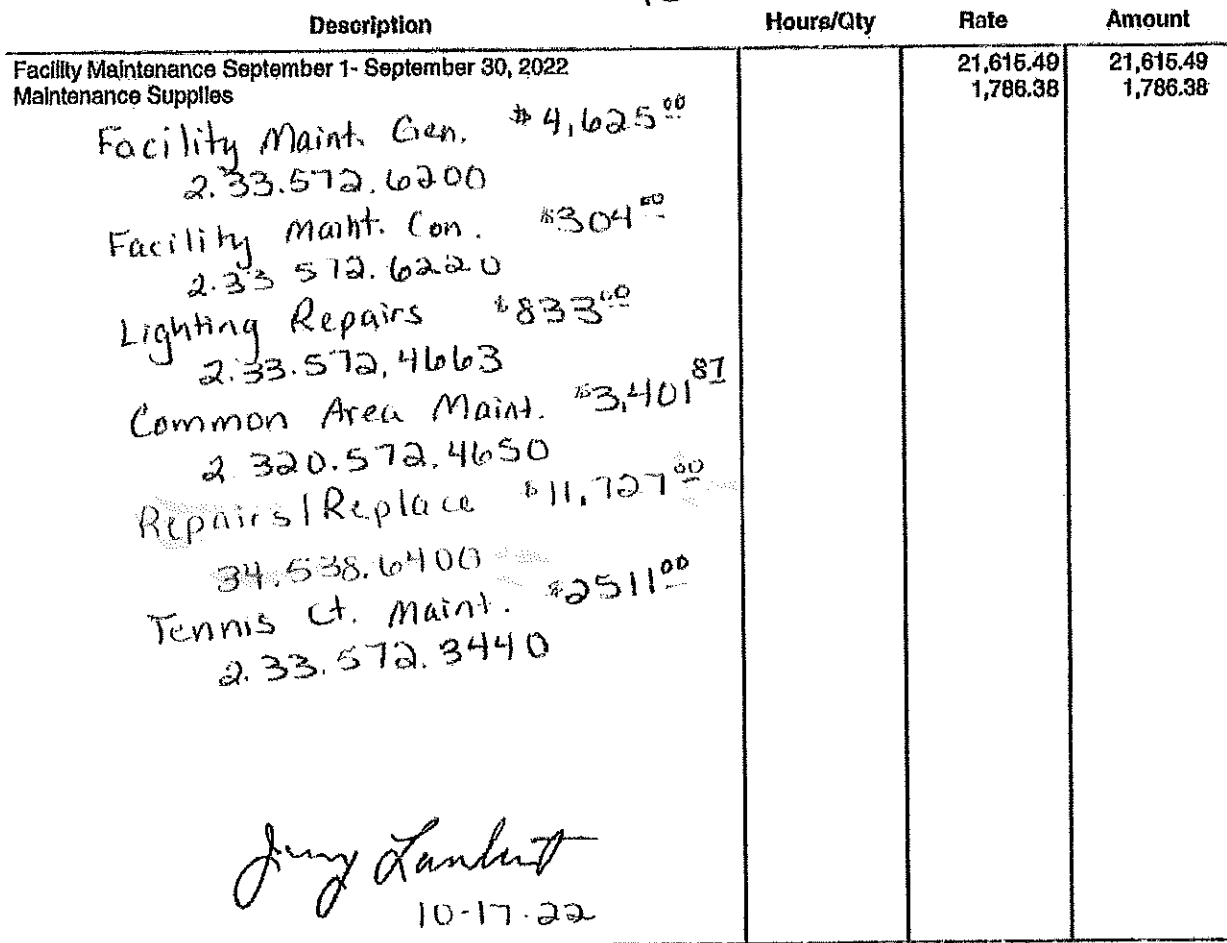 Description Hours/Qty Rate Amount
Facility Maintenance September 1- September 30, 2022 21,615.49 21,615.49
Maintenance Supplies 1,786.38 1,786.38
Facility Maint. Gen. $4,625.00
2.33.572.6200
Facility Maint. Con. $304.00
2.33 572.6220
Lighting Repairs $833.00
2.33.572.4663
Common Area Maint. $3,401.87
2 320.572.4650
Repairs/Replace $11,727.00
34.538.6400
Tennis Ct. Maint. $2511.00
2.33.572.3440
Jerry Lambert
10-17-22